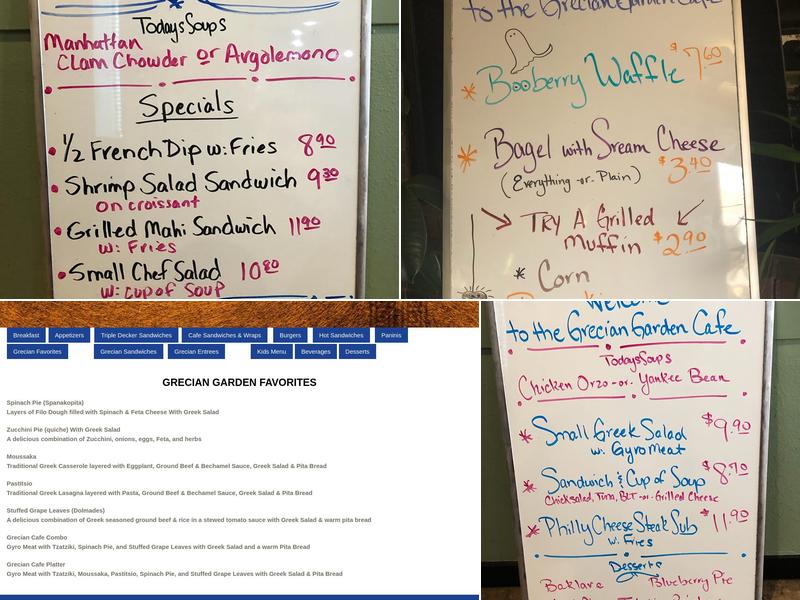 Todays Soups
Manhattan
Clam Chowder or Argolemono
Specials
1/2 French Dip w: Fries 8 90
Shrimp Salad Sandwich 9 30
on croissant
Grilled Mahi Sandwich 11 90
w: Fries
Small Chef Salad 10 80
w: cup of Soup
to the Grecian Garden Cafe
* Booberry Waffle $7.60
* Bagel with Sream Cheese
(Everything -or- Plain) $3.40
Try A Grilled
Muffin $2.90
* Corn
Breakfast Appetizers Triple Decker Sandwiches Cafe Sandwiches & Wraps Burgers Hot Sandwiches Paninis
Grecian Favorites Grecian Sandwiches Grecian Entrees Kids Menu Beverages Desserts
GRECIAN GARDEN FAVORITES
Spinach Pie (Spanakopita)
Layers of Filo Dough filled with Spinach & Feta Cheese With Greek Salad
Zucchini Pie (quiche) With Greek Salad
A delicious combination of Zucchini, onions, eggs, Feta, and herbs
Moussaka
Traditional Greek Casserole layered with Eggplant, Ground Beef & Bechamel Sauce, Greek Salad & Pita Bread
Pastitsio
Traditional Greek Lasagna layered with Pasta, Ground Beef & Bechamel Sauce, Greek Salad & Pita Bread
Stuffed Grape Leaves (Dolmades)
A delicious combination of Greek seasoned ground beef & rice in a stewed tomato sauce with Greek Salad & warm pita bread
Grecian Cafe Combo
Gyro Meat with Tzatziki, Spinach Pie, and Stuffed Grape Leaves with Greek Salad and a warm Pita Bread
Grecian Cafe Platter
Gyro Meat with Tzatziki, Moussaka, Pastitsio, Spinach Pie, and Stuffed Grape Leaves with Greek Salad & Pita Bread
Welcome
to the Grecian Garden Cafe
Todays Soups
Chicken Orzo -or- Yankee Bean
* Small Greek Salad $9.90
w: Gyro Meat
* Sandwich & Cup of Soup $8.70
Chicksalad, Tuna, BLT -or- Grilled Cheese
* Philly Cheese Steak Sub $11.90
w: Fries
Desserts
Baklava Blueberry Pie